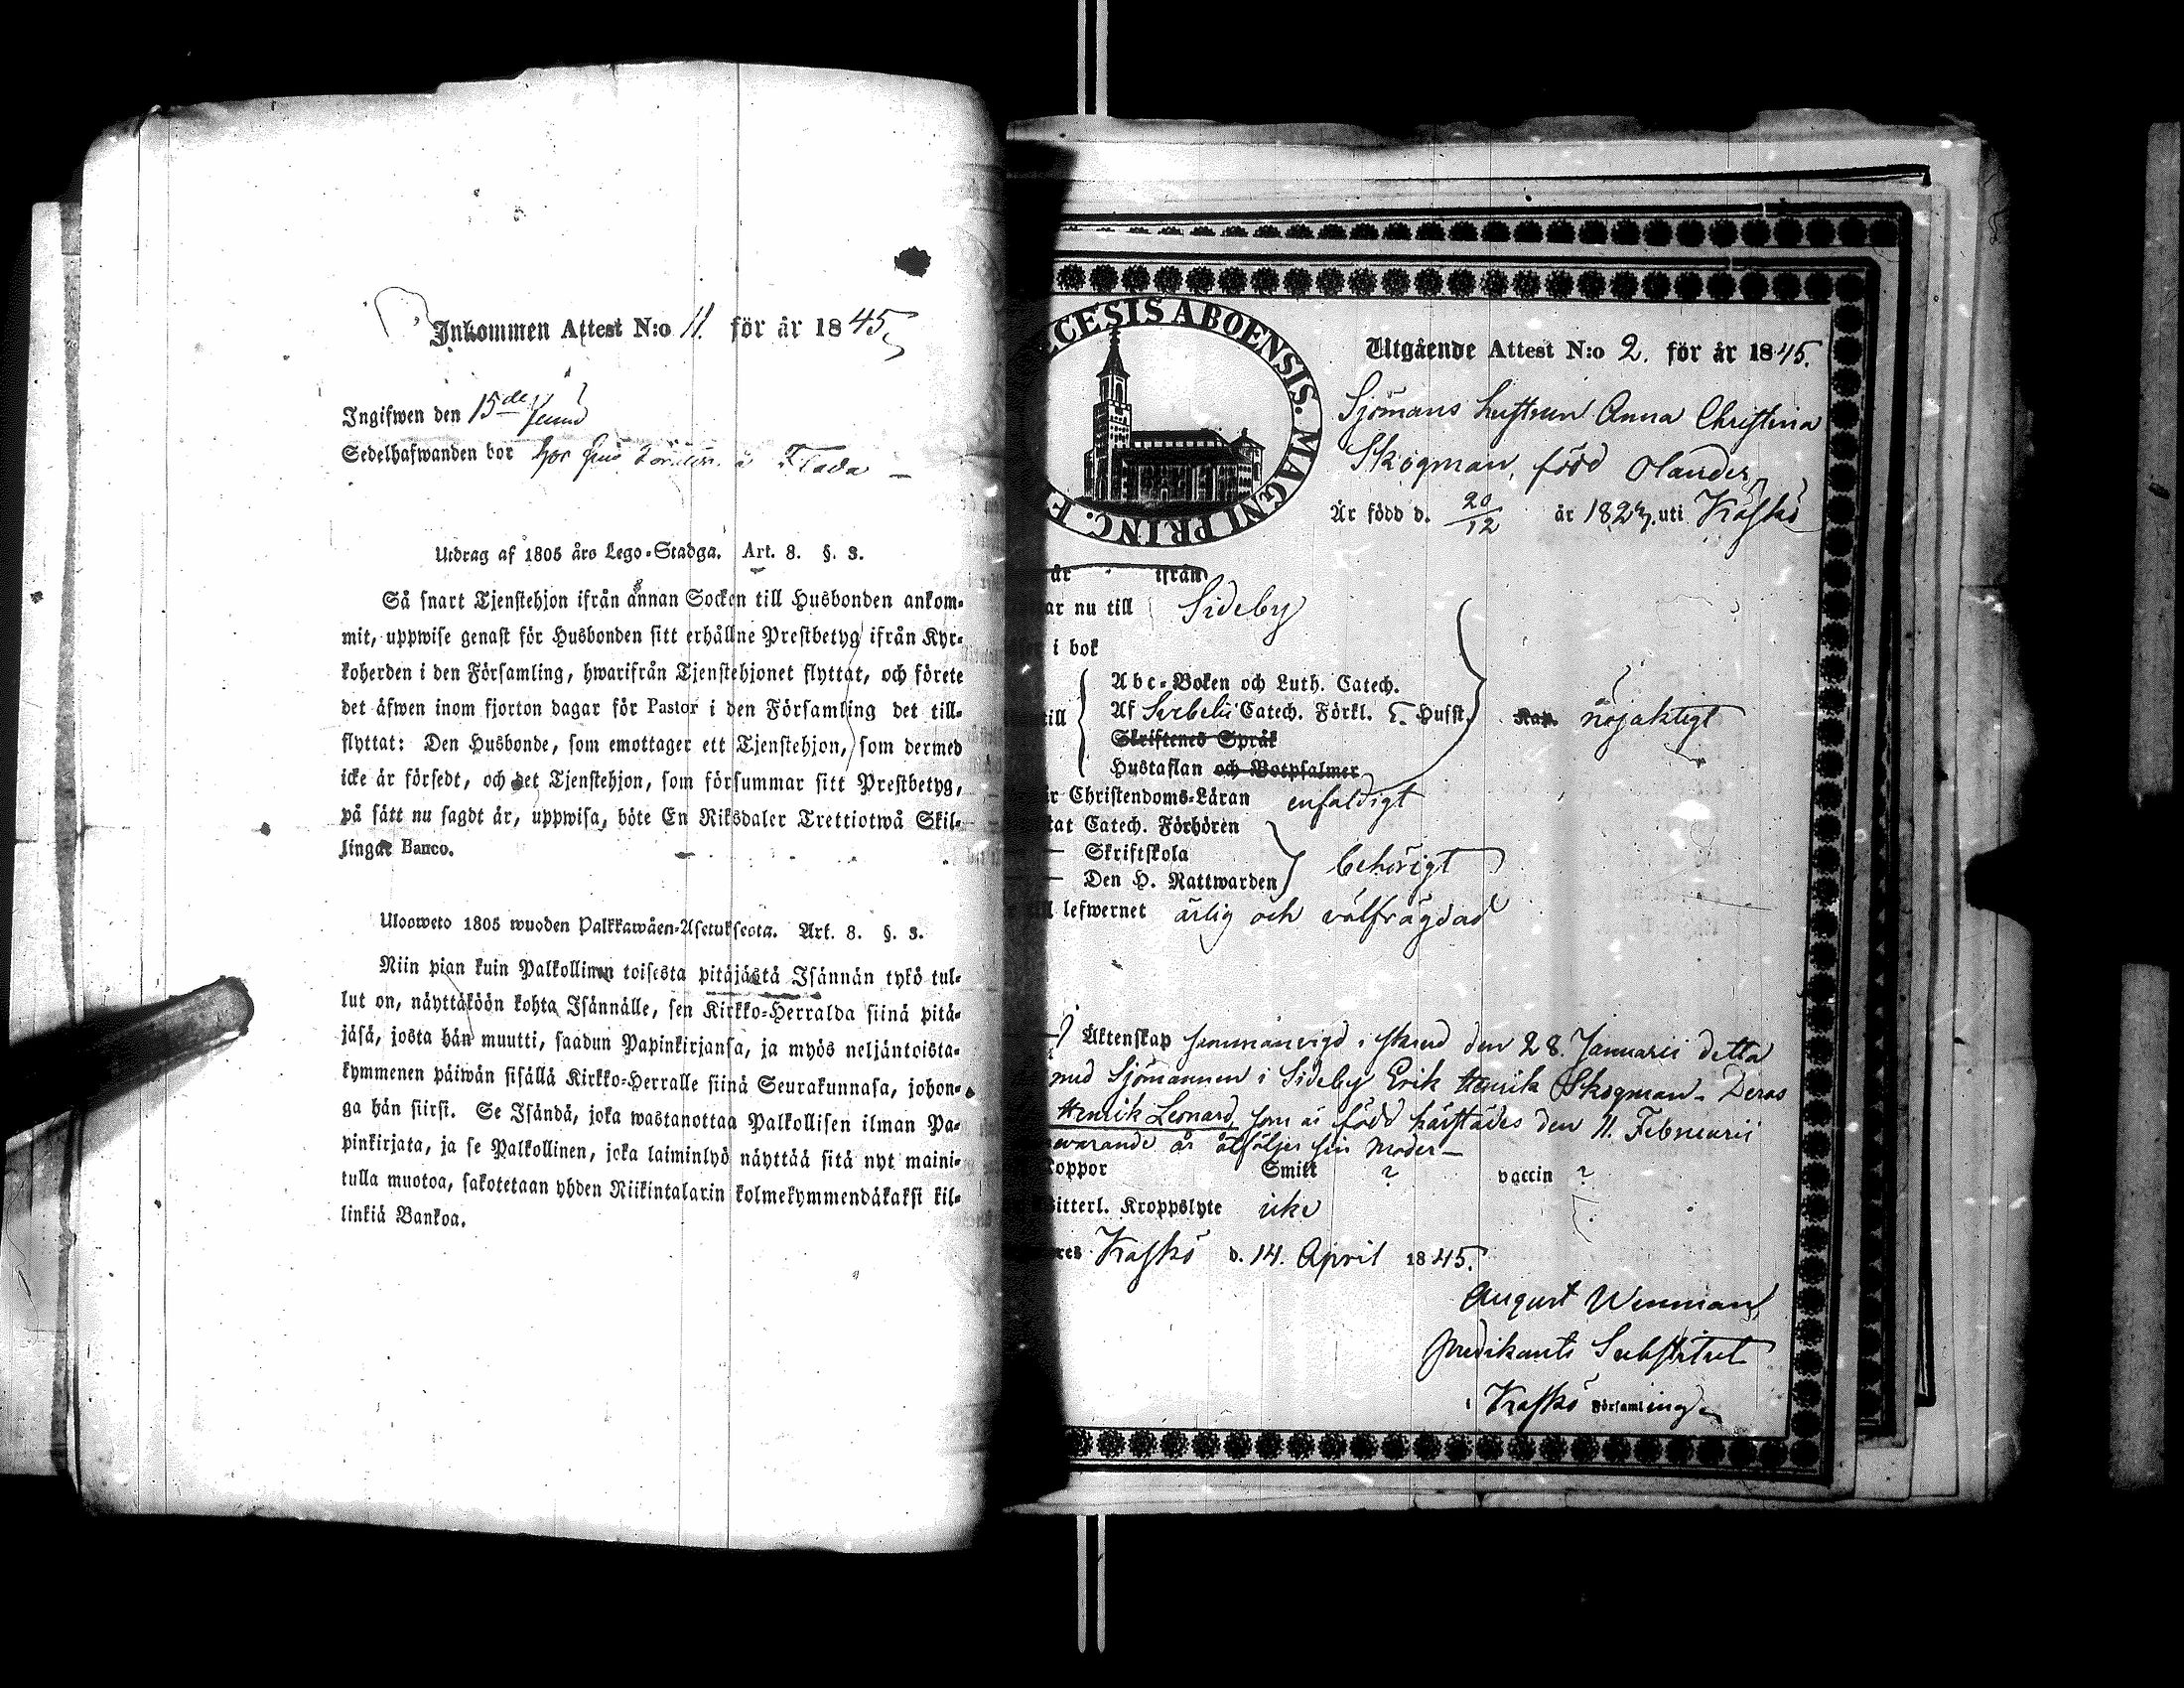 Inkommen Attest N:o 11. för år 1845
Ingifwen den 15de Junii
Sedelhafwanden bor hos å Flada
Utdrag af 1805 års Lego-Stadga. Art. 8. §. 3.
Så snart Tjenstehjon ifrån annan Socken till Husbonden ankom-
mit, uppwise genast för Husbonden sitt erhållne Prestbetyg ifrån Kyr-
koherden i den Församling, hwarifrån Tjenstehjonet flyttat, och förete
det äfwen inom fjorton dagar för Pastor i den Församling det till-
flyttat: Den Husbonde, som emottager ett Tjenstehjon, som dermed
icke är försedt, och det Tjenstehjon, som försummar sitt Prestbetyg,
på sätt nu sagdt är, uppwisa, böte En Riksdaler Trettiotwå Skil-
lingar Banco.
Ulosweto 1805 wuoden Palkkawäen-Asetuksesta. Art. 8. §. 3.
Niin pian kuin Palkollinen toisesta pitäjästä Isännän tykö tul-
lut on, näyttäköön kohta Isännälle, sen Kirkko-Herralda siinä pitä-
jäsä, josta hän muutti, saadun Papinkirjansa, ja myös neljäntoista-
kymmenen päiwän sisällä Kirkko-Herralle siinä Seurakunnasa, johon-
ga hän siirsi. Se Isändä, joka wastanottaa Palkollisen ilman Pa-
pinkirjata, ja se Palkollinen, joka laiminlyö näyttää sitä nyt maini-
tulla muotoa, sakotetaan yhden Riikintalarin kolmekymmendäkaksi kil-
linkiä Bankoa.
ECESIS ABOENSIS. MAGNI PRINC. F
Utgående Attest N:o 2. för år 1845.
Sjömans hustrun Anna Christina
Skogman, född Olander
Är född d. 20/12 år 1823. uti Kaskö
är ifrån
ar nu till Sideby
i bok
till Abc-Boken och Luth. Catech.
Af Svebelii Catech. Förkl. Husst. Kan. nöjaktigt
Skriftenes Språk
Hustaflan och Botpsalmer
Christendoms-Läran enfaldigt
tat Catech. Förhören
Skriftskola behörigt
Den H. Nattwarden
till lefwernet ärlig och välfrägdad
Äktenskap sammanvigd i stånd den 28. Januarii detta
med Sjömannen i Sideby Erik Henrik Skogman. Deras
Henrik Leonard, som är född härstädes den 11. Februarii
warande år åtföljer sin Moder
koppor Smitt ? vaccin ?
witterl. Kroppslyte icke
res Kaskö d. 14. April 1845.
August Wenman
Predikants Substitut
i Kaskö Församling